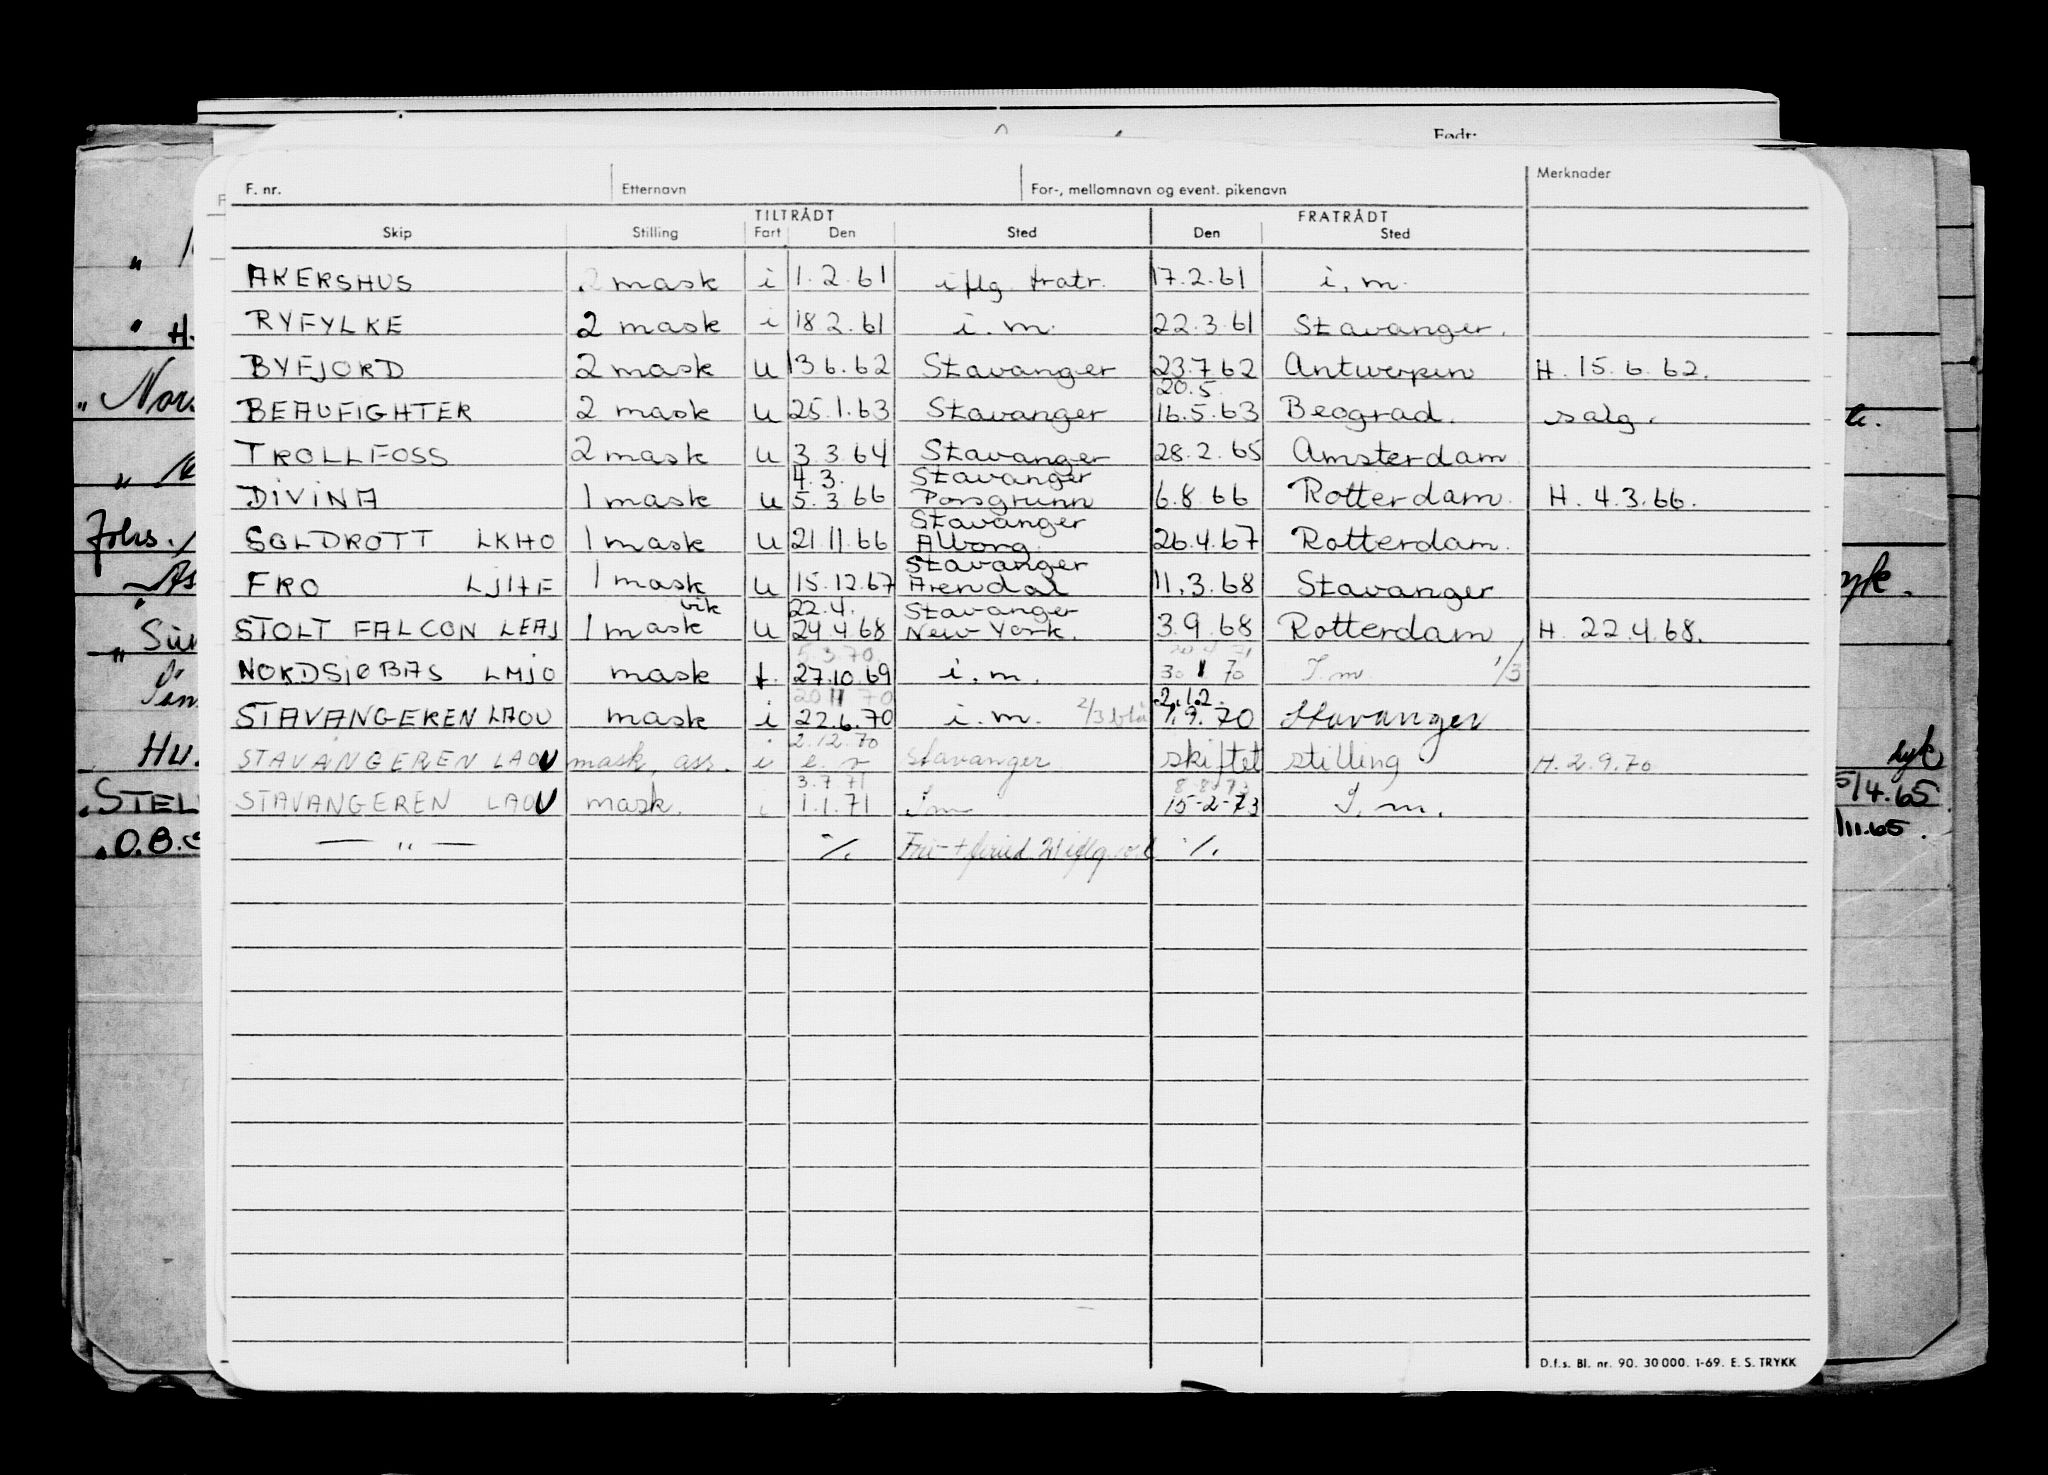 Født:
F. nr. Etternavn For-, mellomnavn og event. pikenavn Merknader
TILTRÅDT FRATRÅDT
Skip Stilling Fart Den Sted Den Sted
AKERSHUS 2 mask i 1.2.61 iflg. fratr. 17.2.61 i.m.
RYFYLKE 2 mask i 18.2.61 i.m. 22.3.61 Stavanger.
BYFJORD 2 mask u 13.6.62 Stavanger 23.7.62 Antwerpen H. 15.6.62.
20.5.
BEAUFIGHTER 2 mask u 25.1.63 Stavanger 16.5.63 Beograd. salg.
TROLLFOSS 2 mask u 3.3.64 Stavanger 28.2.65 Amsterdam
4.3. Stavanger
DIVINA 1 mask u 5.3.66 Porsgrunn 6.8.66 Rotterdam. H. 4.3.66.
Stavanger
SOLDROTT LKHO 1 mask u 21.11.66 Ålborg. 26.4.67 Rotterdam.
Stavanger
FRO LJHF 1 mask u 15.12.67 Arendal 11.3.68 Stavanger
vik 22.4. Stavanger
STOLT FALCON LEAJ 1 mask u 24.4.68 New York. 3.9.68 Rotterdam H. 22.4.68.
5.3.70.
NORDSJØBAS LMJO mask f. 27.10.69 i.m. 30 1 70 I.m. 1/3
20 11 70 2.12.
STAVANGEREN LAOU mask i 22.6.70 i.m. 2/3 blå 1.9.70 Stavanger
2.12.70
STAVANGEREN LAOV mask. ass. i Stavanger skiftet stilling H. 2.9.70
3.7.71
STAVANGEREN LAOV mask. i 1.1.71 I m 15-2-73 I. m.
— " — %. %.
STEL 5/4.65
O.B.S /11.65.
D.f.s. Bl. nr. 90. 30 000. 1-69. E. S. TRYKK